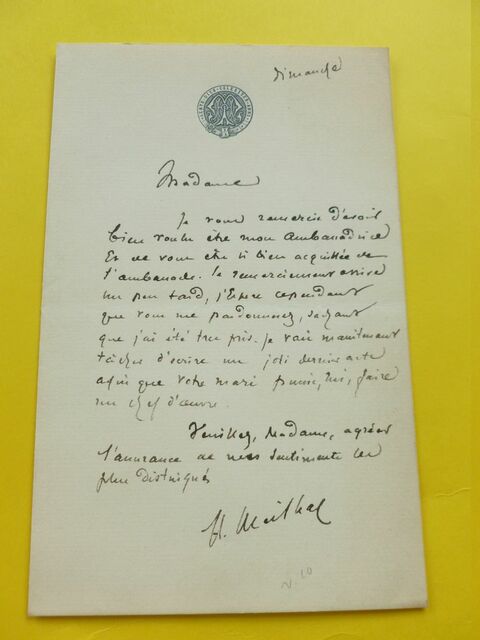 Dimanche
Madame
Je vous remercie d'avoir
bien voulu être mon ambassadrice
Et de vous être si bien acquittée de
l'ambassade. Le remerciement arrive
un peu tard, j'Espère cependant
que vous me pardonnerez, sachant
que j'ai été très pris. Je vais maintenant
tâcher d'écrire un joli dernier acte
afin que votre mari puisse, lui, faire
un chef d'œuvre.
Veuillez, Madame, agréer
l'assurance de mes sentiments les
plus distingués
H. Meilhac
N. 10